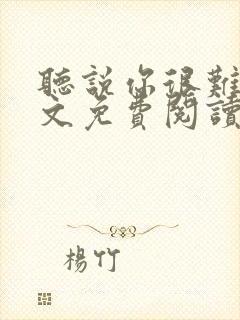 聽說你很難
文免費閱讀
楊竹